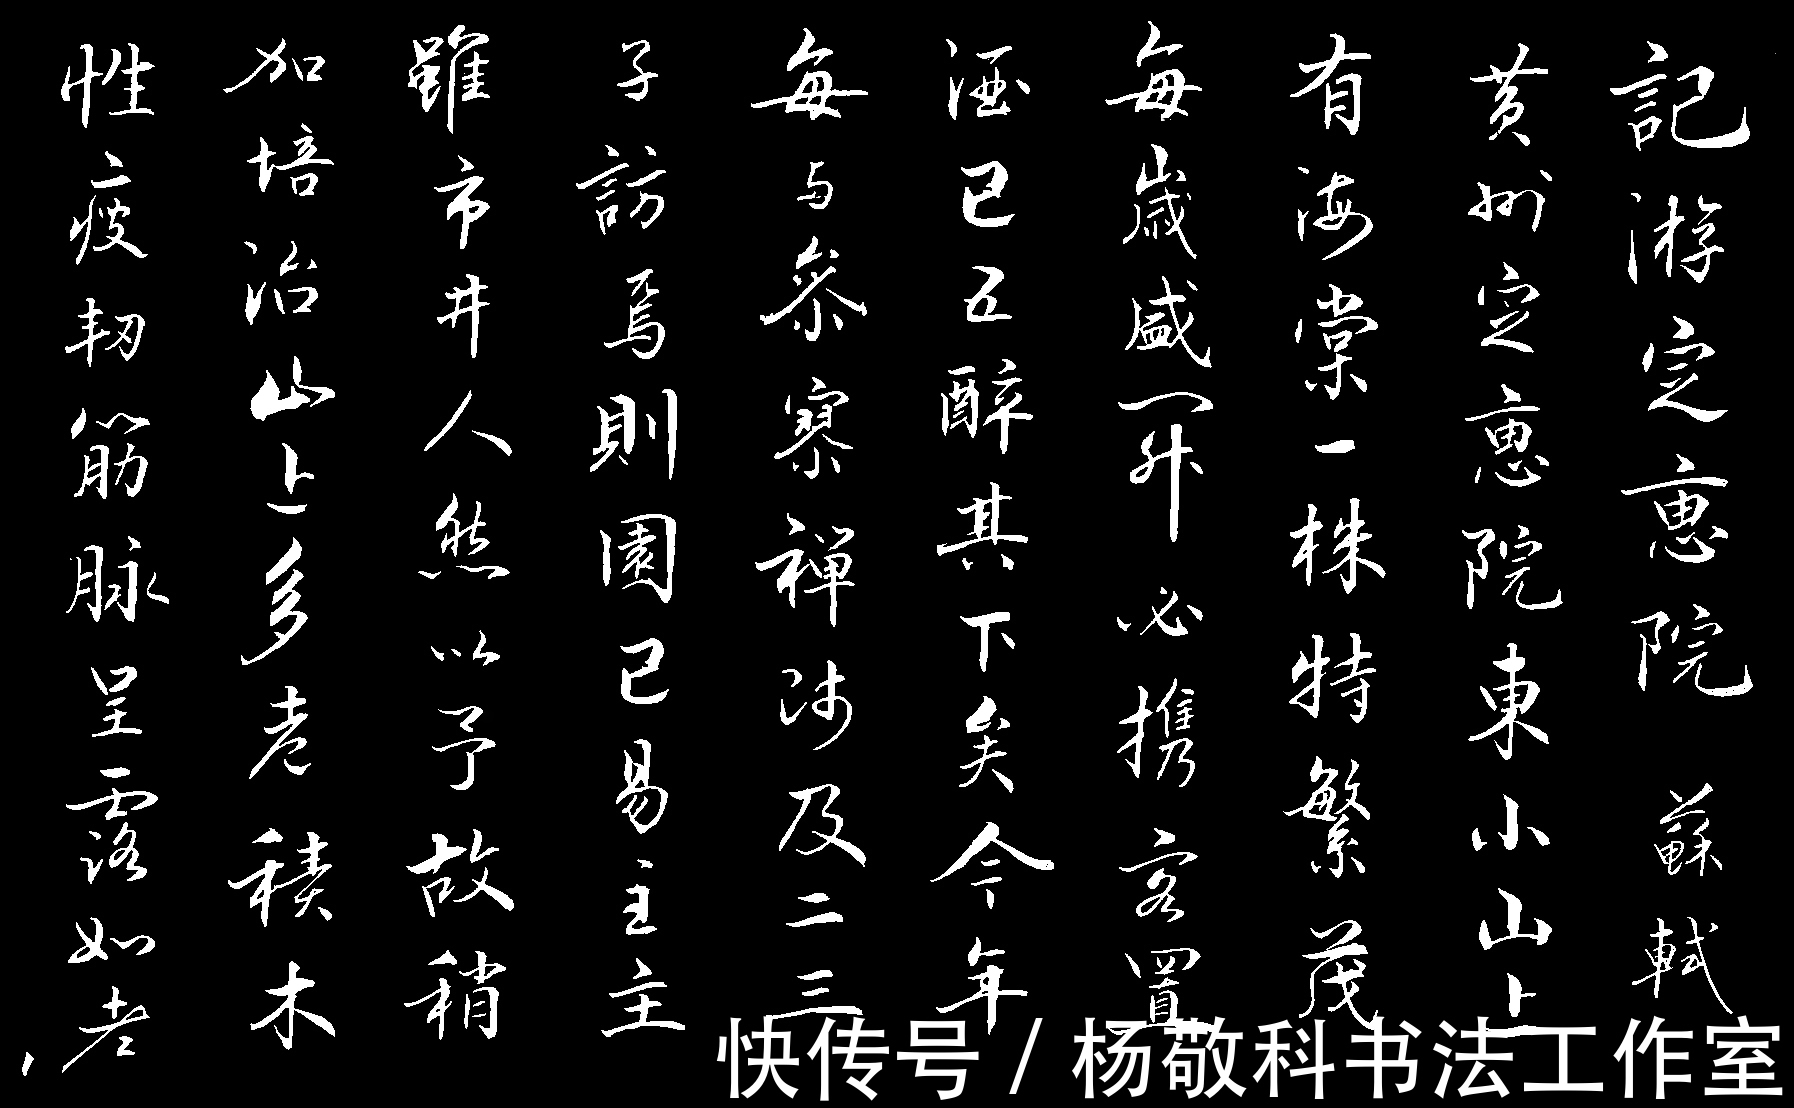 記游定惠院 蘇軾
黄州定惠院東小山上
有海棠一株特繁茂
每歲盛開必攜客置
酒已五醉其下矣今年
每与參寥禪師及二三
子訪焉則園已易主主
雖市井人然以予故稍
加培治山上多老積木
性瘦韌筋脉呈露如老
快传号 / 杨敬科书法工作室